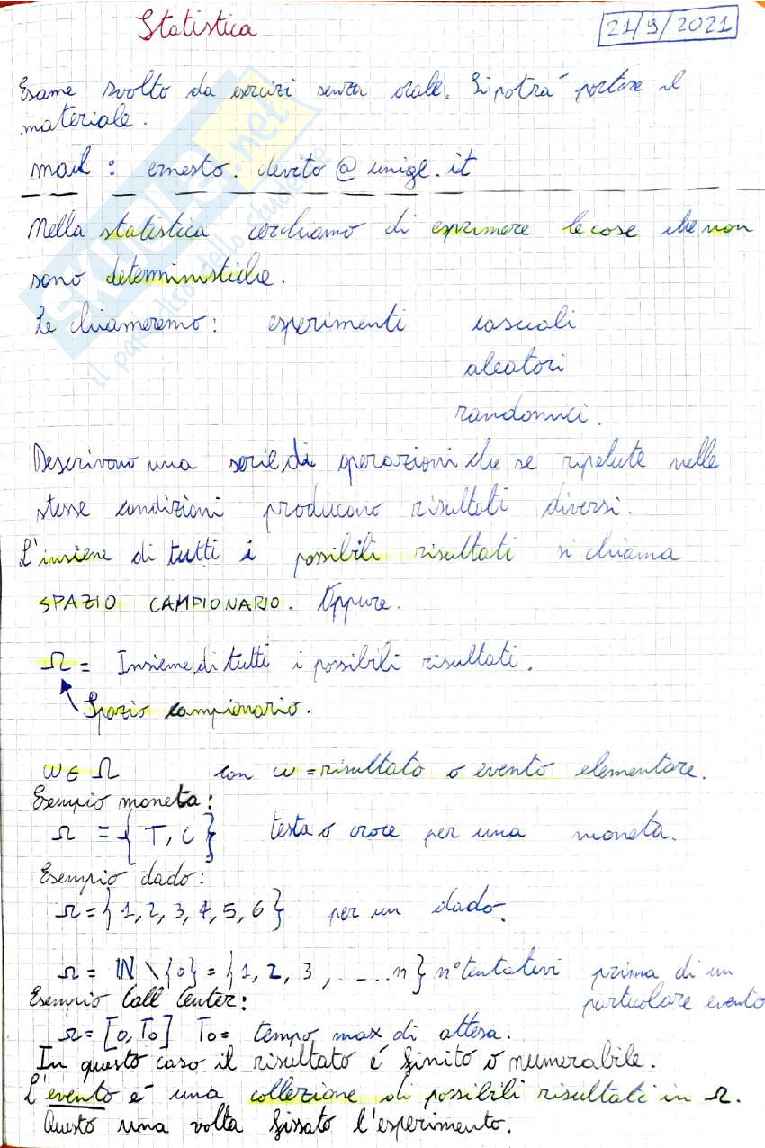 Statistica
21/9/2021
Esame svolto da esercizi senza orale. Si potrà portare il
materiale.
mail : ernesto.devito@unige.it
Nella statistica cerchiamo di esprimere le cose che non
sono deterministiche.
Le chiameremo: esperimenti casuali
aleatori
randomici.
Descrivono una serie di operazioni che se ripetute nelle
stesse condizioni producono risultati diversi.
L'insieme di tutti i possibili risultati si chiama
SPAZIO CAMPIONARIO. Oppure.
Ω = Insieme di tutti i possibili risultati.
Spazio campionario.
ω ∈ Ω con ω = risultato o evento elementare.
Esempio moneta:
Ω = {T, C} testa o croce per una moneta.
Esempio dado:
Ω = {1, 2, 3, 4, 5, 6} per un dado.
Ω = ℕ \ {0} = {1, 2, 3, ..... n} n° tentativi prima di un
particolare evento
Esempio Call Center:
Ω = [0, T₀] T₀ = tempo max di attesa.
In questo caso il risultato é finito o numerabile.
L'evento é una collezione di possibili risultati in Ω.
Questo una volta fissato l'esperimento.
SKUOLA.net
il paradiso dello studente